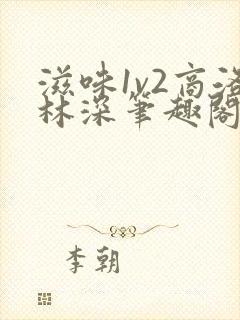 滋味1v2高洛
林深笔趣阁
李朝